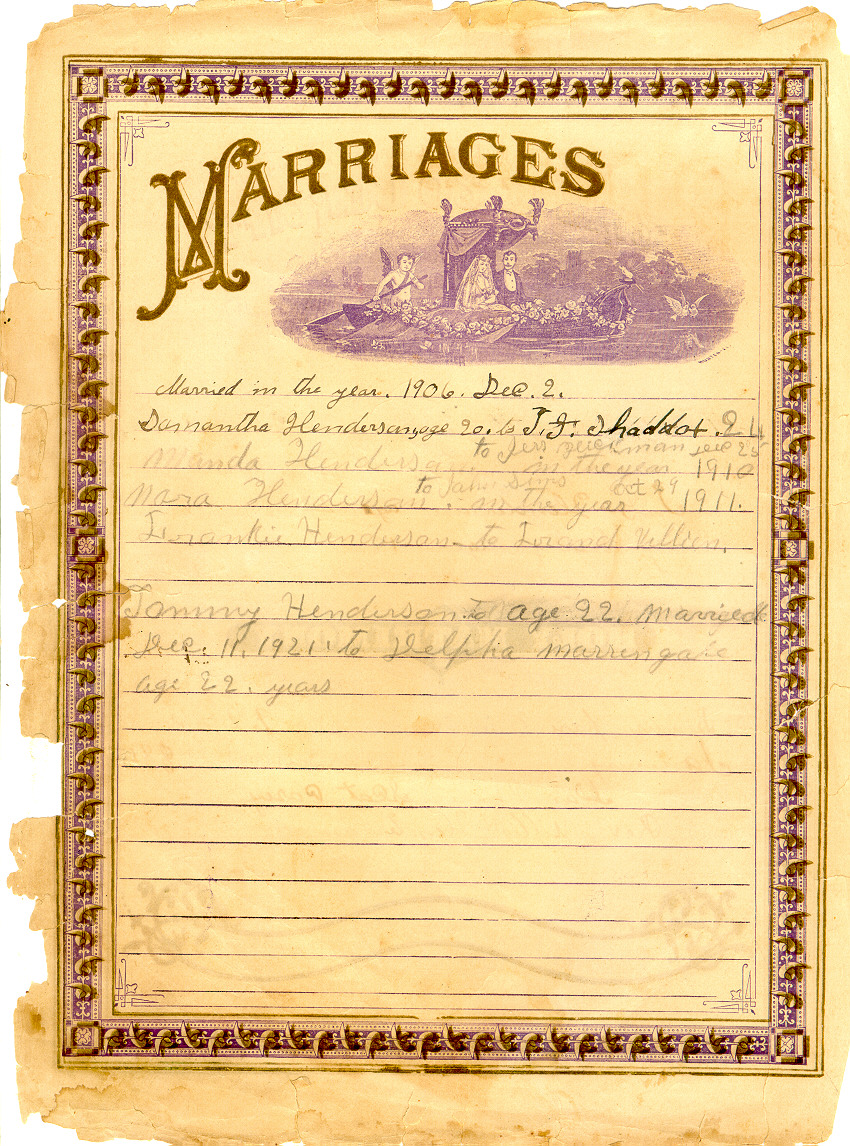 MARRIAGES
Married in the year. 1906. Dec. 2.
Samantha Henderson, age 20. to T. F. Shaddox. 24
to Jess Dec 25
Manda Henderson. in the year 1910
to John Sims Oct 29
Nora Henderson. in the year 1911.
Frankie Henderson to
Tommy Henderson to age 22. married
Dec. 11, 1921. to Delpha
age 22. years